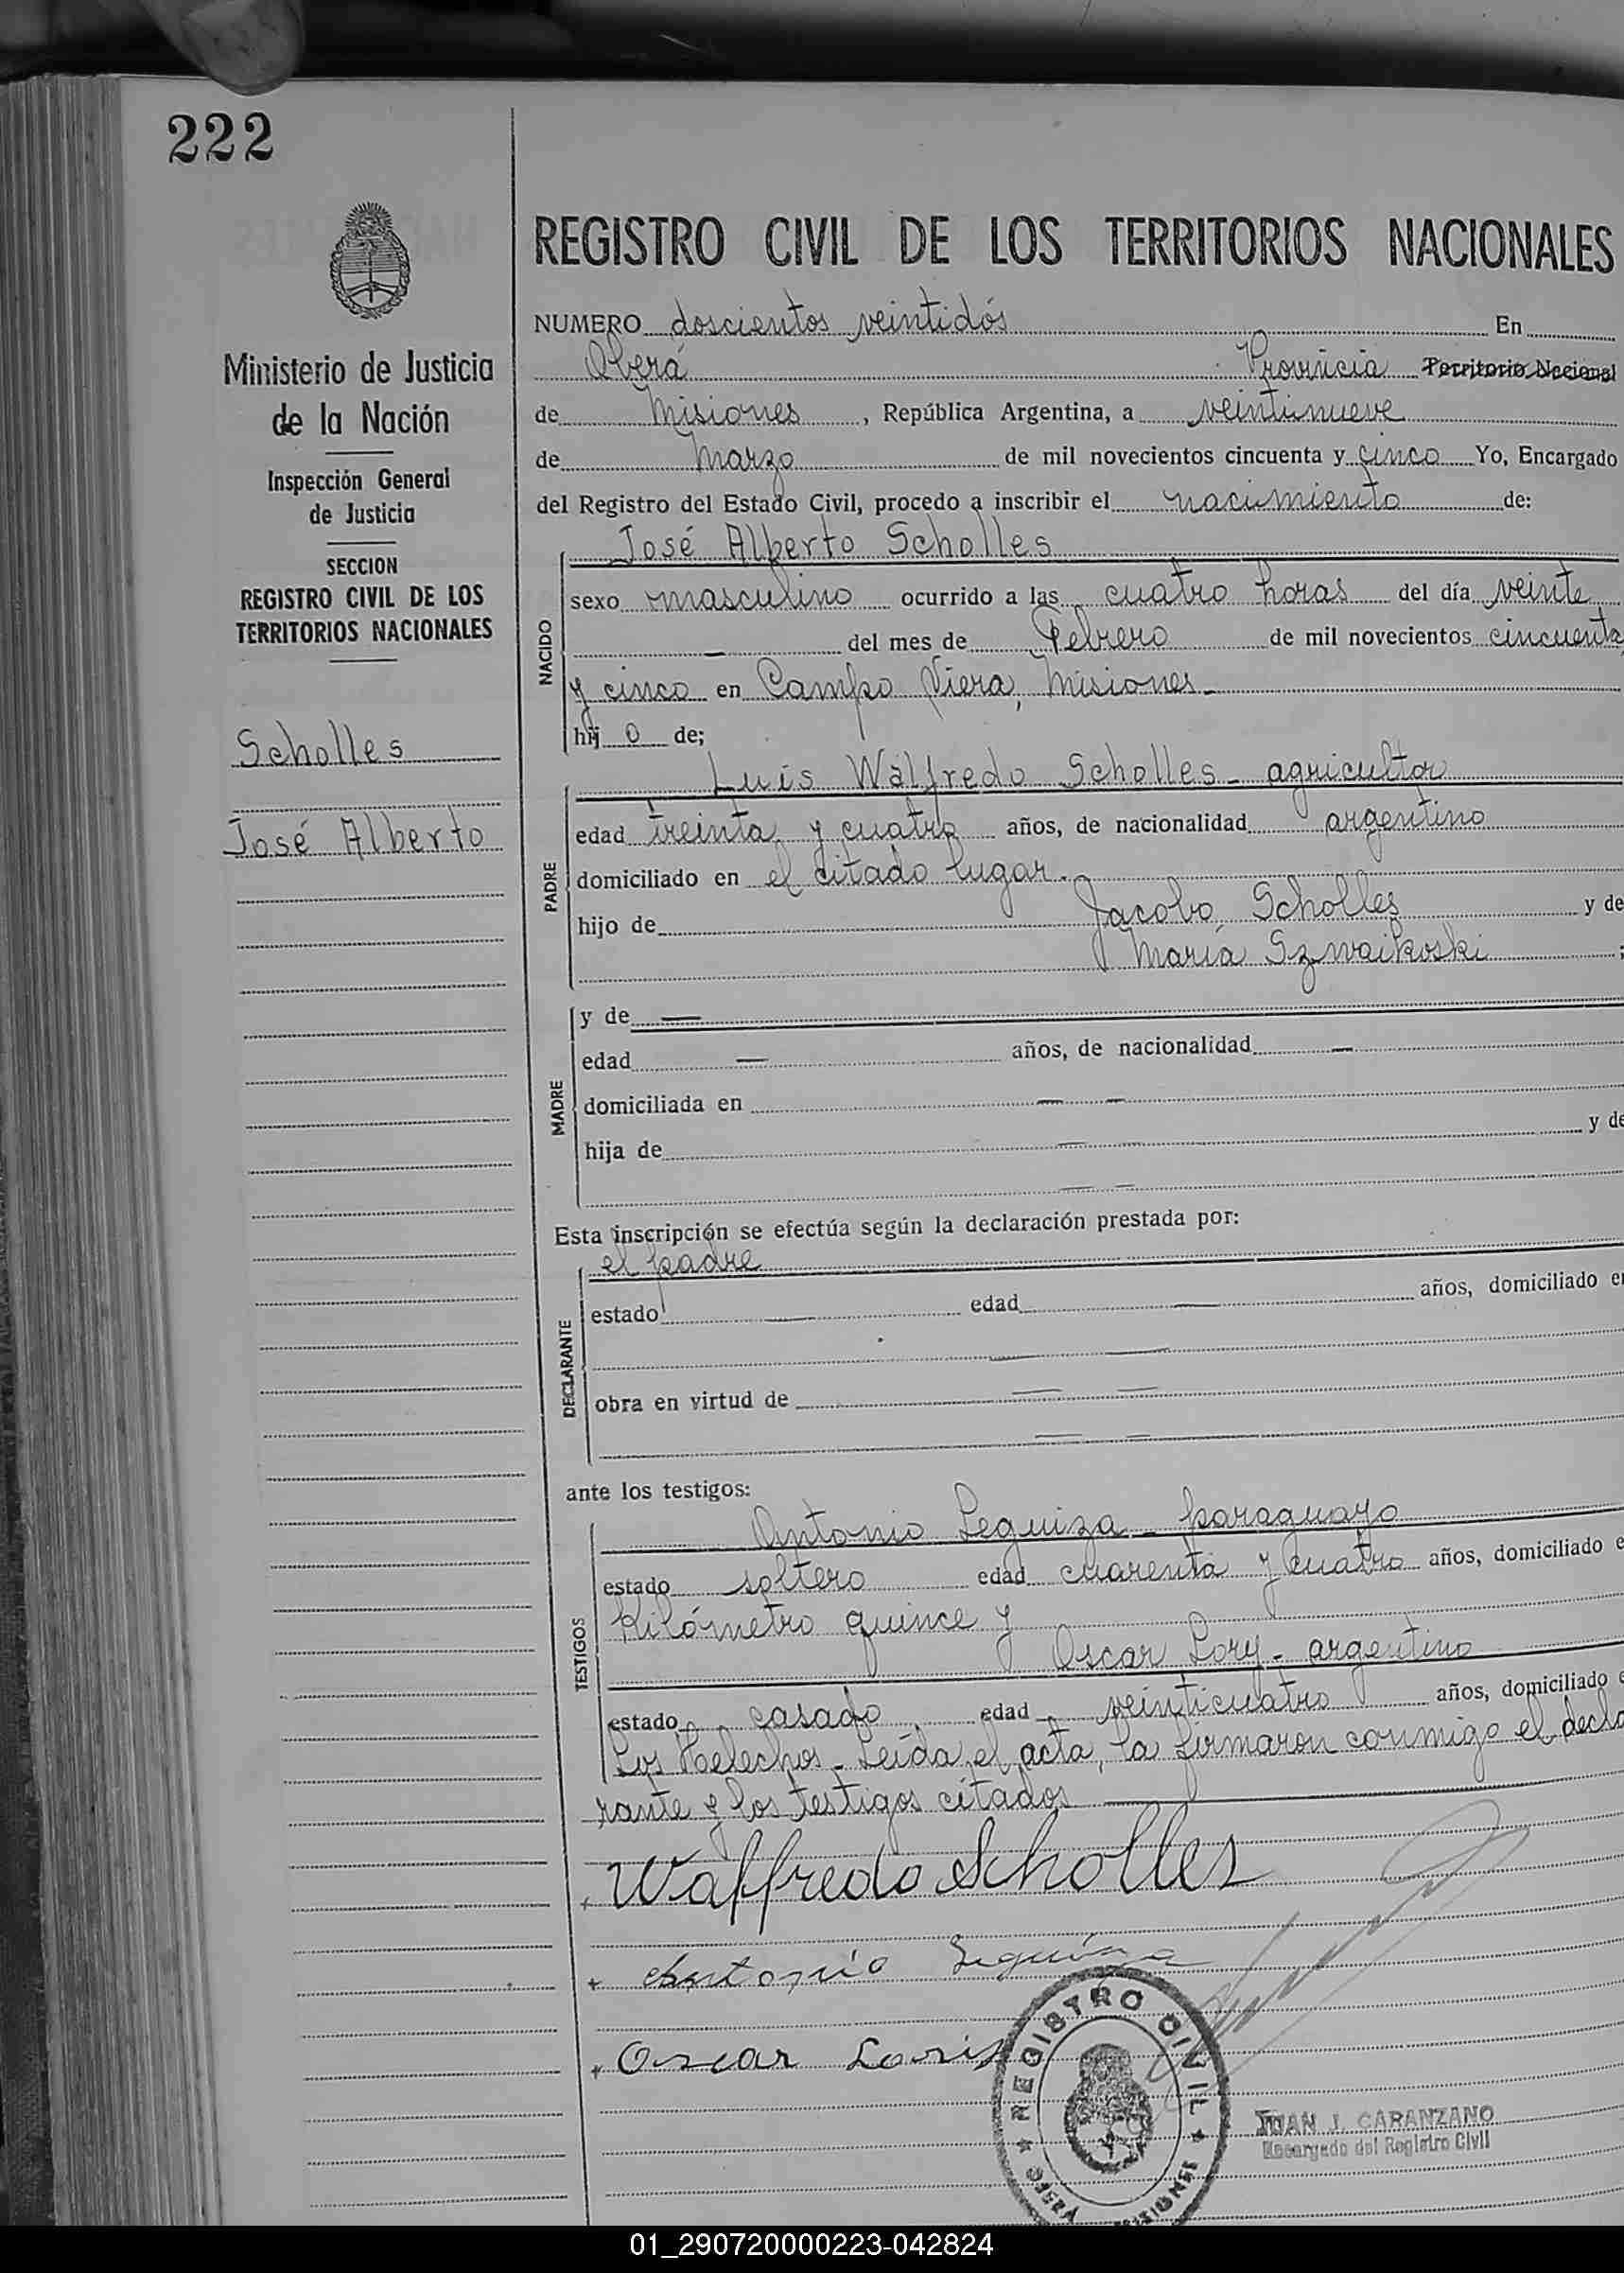 222
REGISTRO CIVIL DE LOS TERRITORIOS NACIONALES
Ministerio de Justicia
de la Nación
Inspección General
de Justicia
SECCION
REGISTRO CIVIL DE LOS
TERRITORIOS NACIONALES
Scholles
José Alberto
NUMERO doscientos veintidós En
Oberá Provincia Territorio Nacional
de Misiones, República Argentina, a veintinueve
de Marzo de mil novecientos cincuenta y cinco Yo, Encargado
del Registro del Estado Civil, procedo a inscribir el nacimiento de:
NACIDO
José Alberto Scholles
sexo masculino ocurrido a las cuatro horas del día veinte
— del mes de Febrero de mil novecientos cincuenta
y cinco en Campo Viera, Misiones.-
hijo de;
PADRE
Luis Walfredo Scholles - agricultor
edad treinta y cuatro años, de nacionalidad argentino
domiciliado en el citado lugar.
hijo de Jacobo Scholles y de
María Szwaikoski ;
MADRE
y de —
edad — años, de nacionalidad —
domiciliada en — —
hija de — — y de
— —
Esta inscripción se efectúa según la declaración prestada por:
DECLARANTE
el padre
estado — edad — años, domiciliado en
— —
obra en virtud de — —
— —
ante los testigos:
TESTIGOS
Antonio Leguiza - paraguayo
estado soltero edad cuarenta y cuatro años, domiciliado e
Kilómetro quince y
Oscar Lory - argentino
estado casado, edad veinticuatro años, domiciliado e
Los Helechos - Leída el acta, la firmaron conmigo el decla
rante y los testigos citados —
Walfredo Scholles
+ Antonio Leguiza
+ Oscar Loris
REGISTRO CIVIL
MISIONES
JUAN J. CARANZANO
Encargado del Registro Civil
01_290720000223-042824